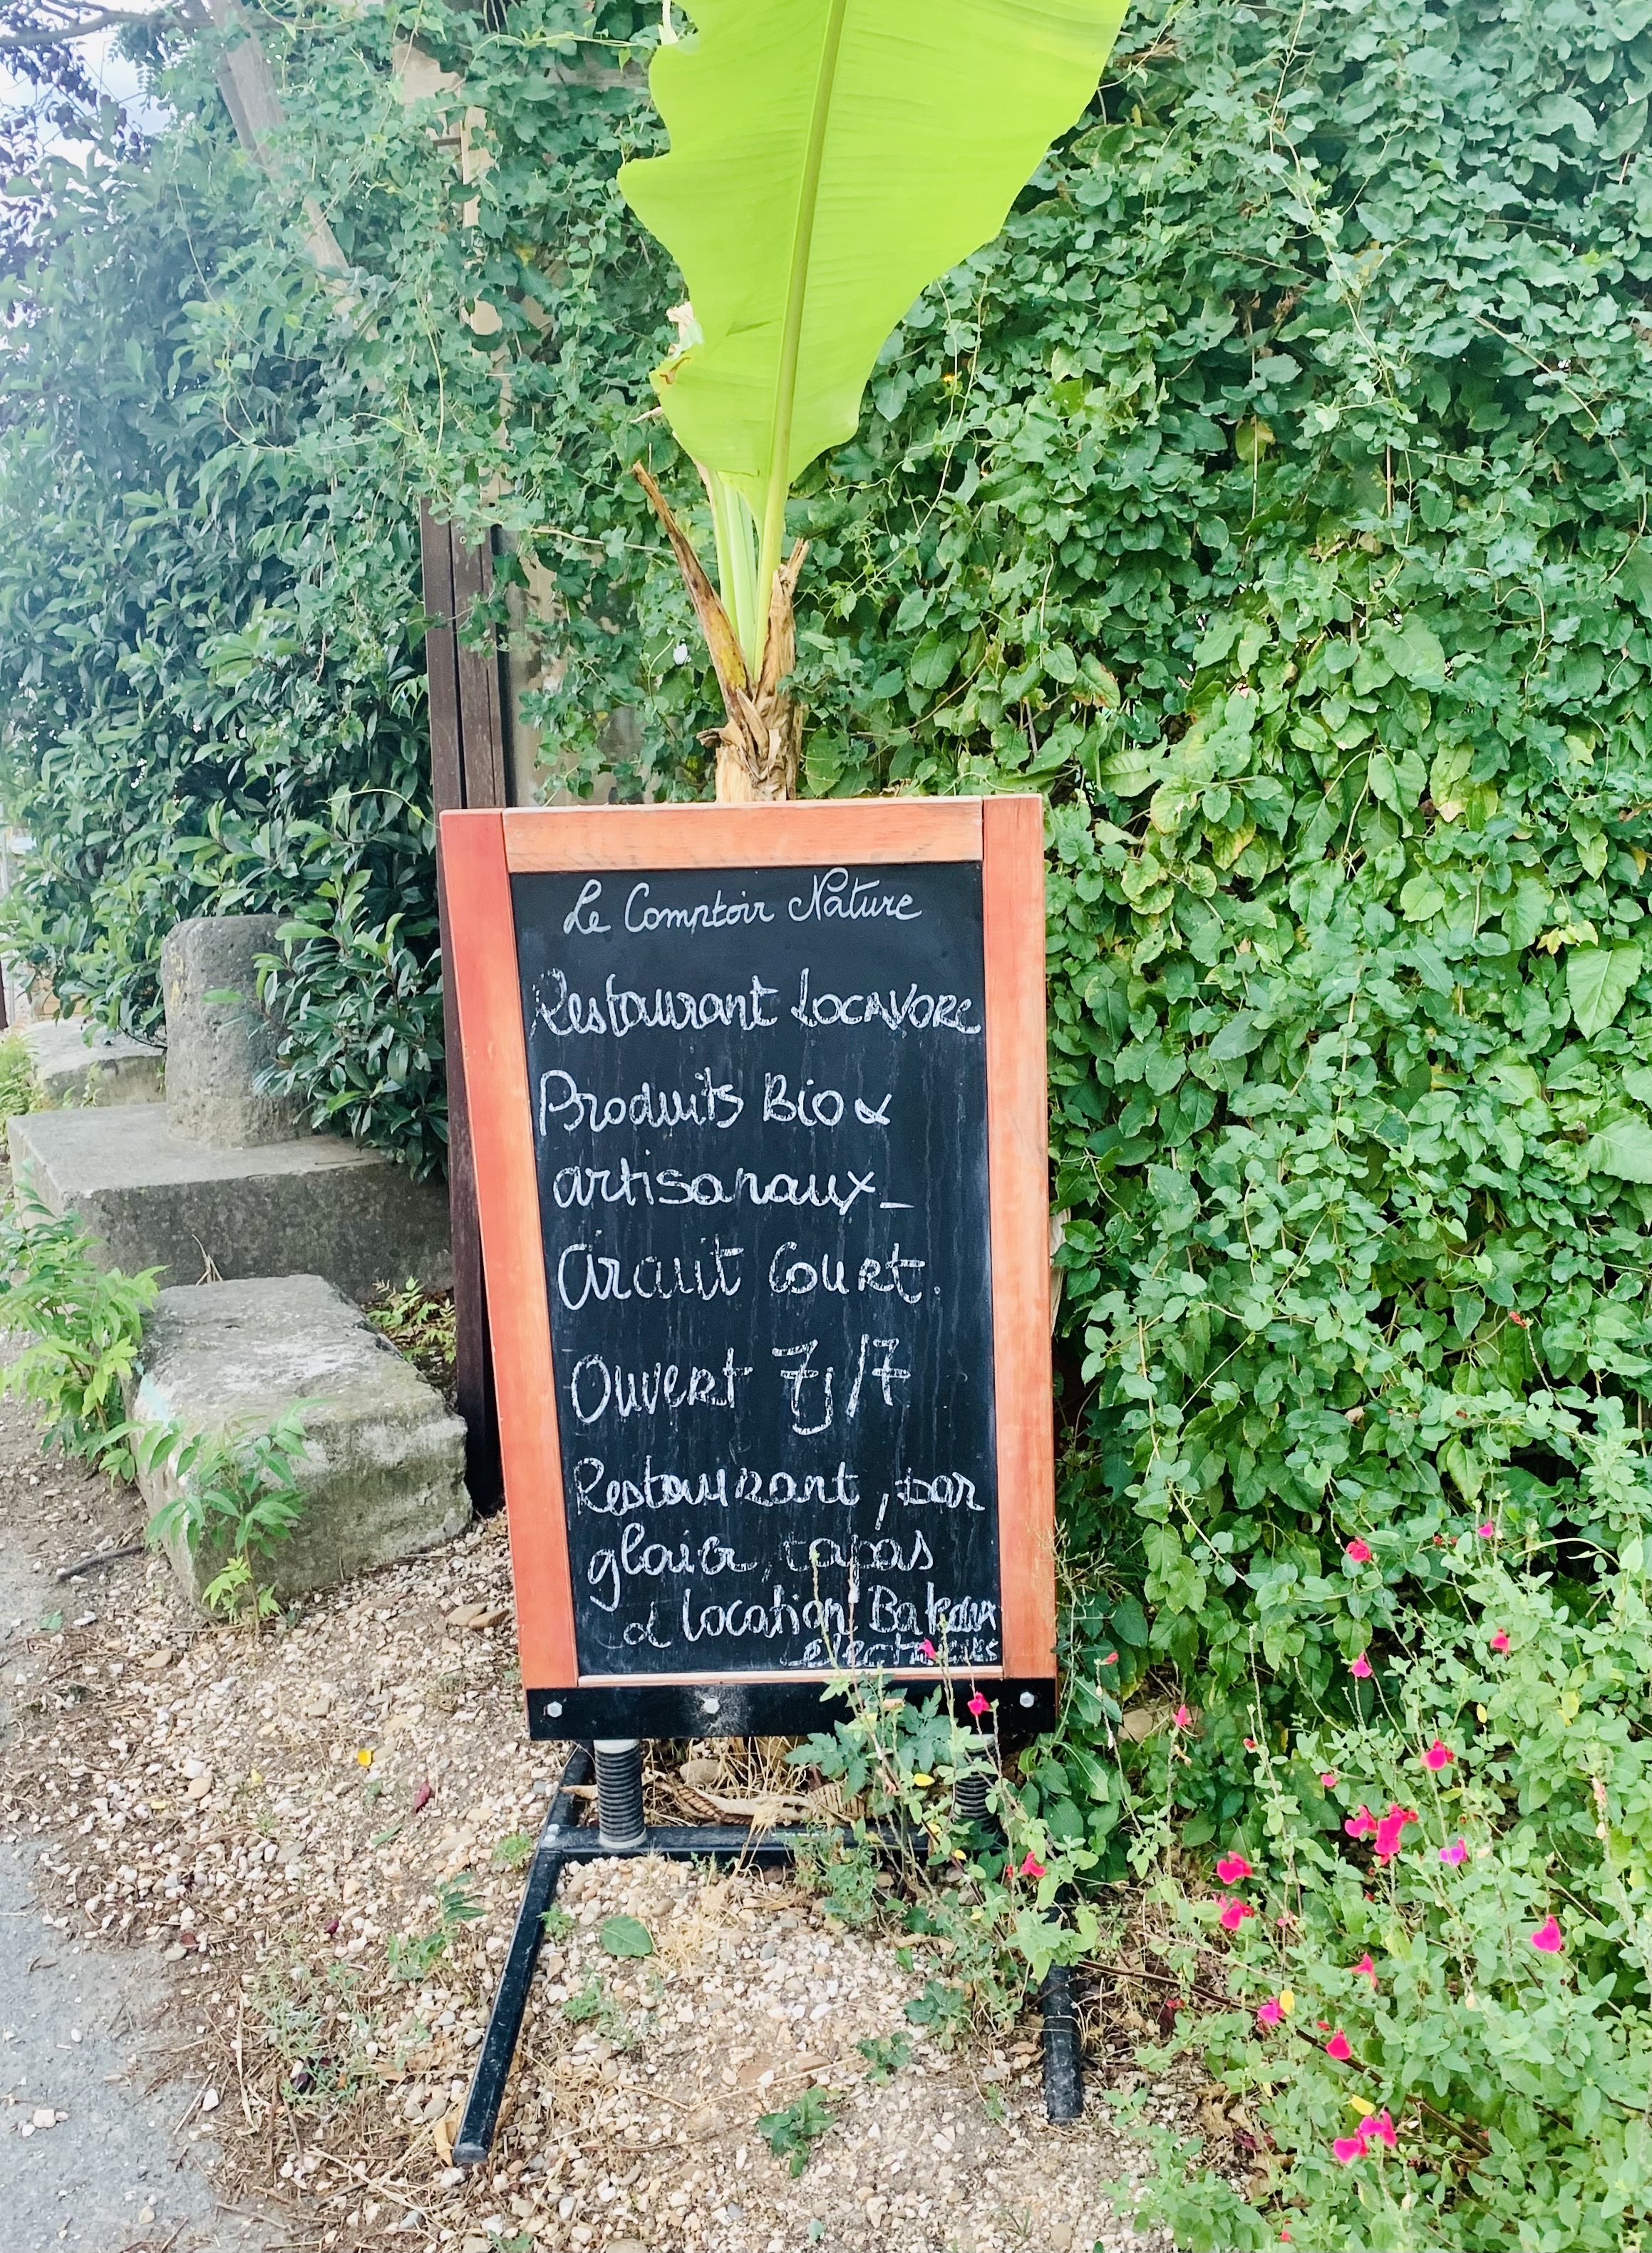 Le Comptoir Nature
Restaurant Locavore
Produits Bio &
artisanaux_
Circuit Court.
Ouvert 7j/7
Restaurant, bar
glacier, tapas
& location Bateaux
ELECTRIQUES